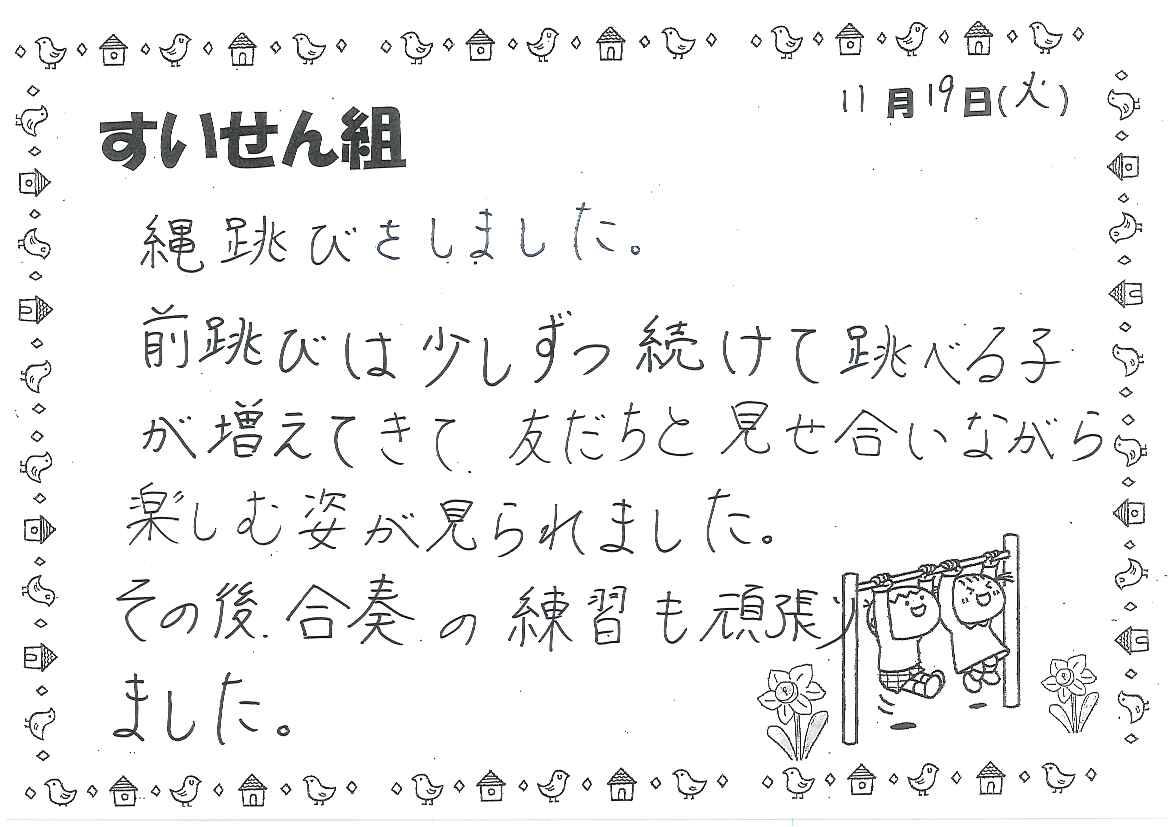 11月19日(火)
すいせん組
縄跳びをしました。
前跳びは少しずつ続けて跳べる子
が増えてきて、友だちと見せ合いながら
楽しむ姿が見られました。
その後、合奏の練習も頑張り
ました。